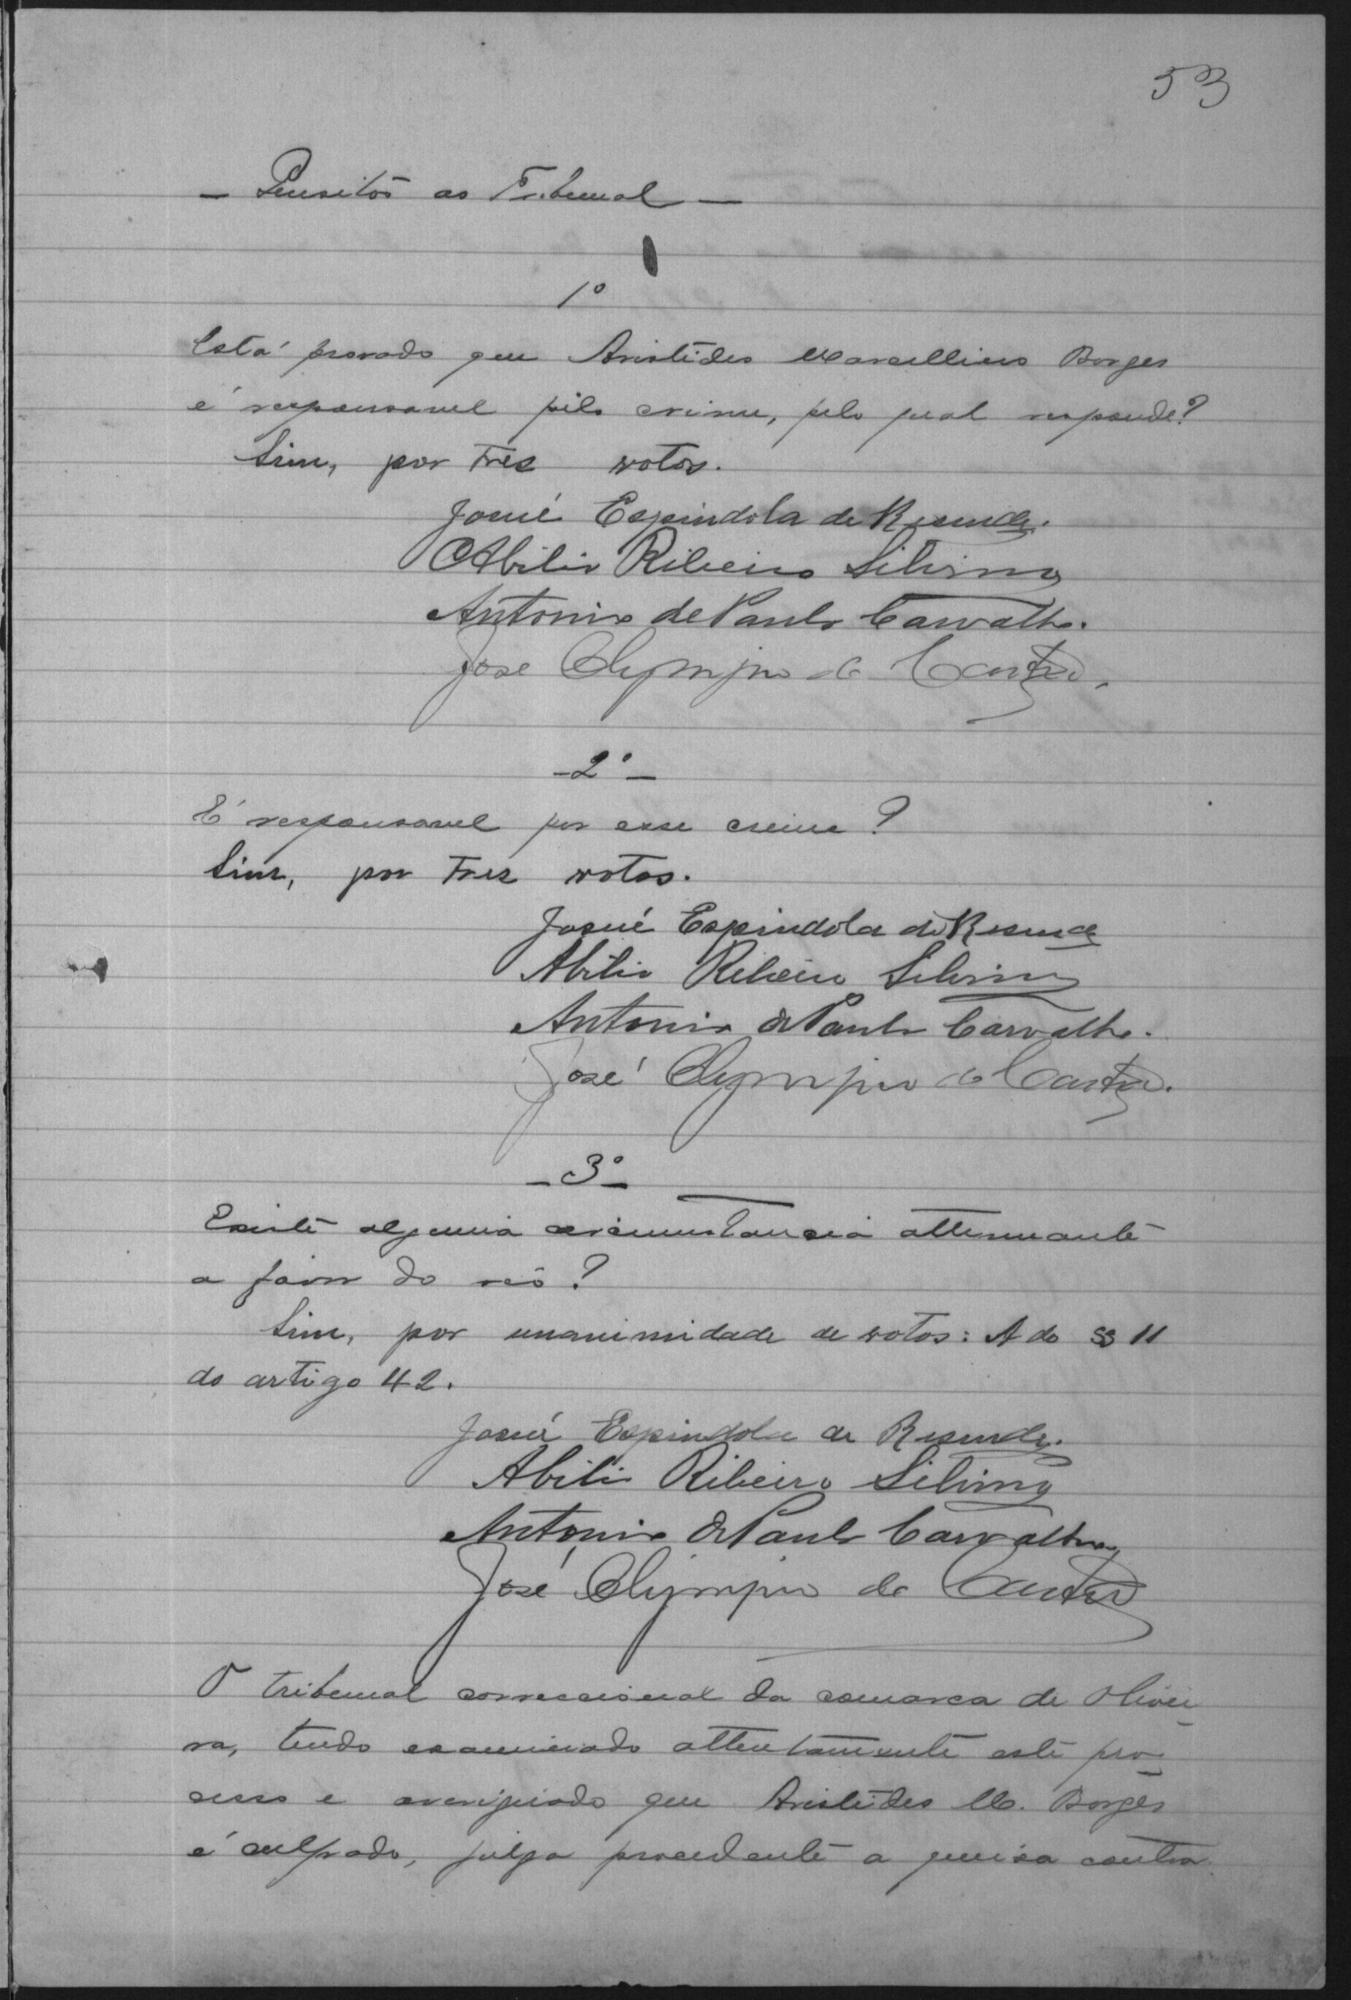 53
— Quesitos ao Tribunal —
1º
Está provado que Aristides Marcellino Borges
é responsavel pelo crime, pelo qual responde?
Sim, por tres votos.
Josué Espindola de Resende.
Abilio Ribeiro Silvino
Antonio de Paulo Carvalho.
José Olympio de Castro.
— 2º —
É responsavel por esse crime?
Sim, por tres votos.
Josué Espindola de Resende
Abilio Ribeiro Silvino
Antonio de Paulo Carvalho.
José Olympio de Castro.
— 3º —
Existe alguma circumstancia attenuante
a favor do réo?
Sim, por unanimidade de votos: A do § 11
do artigo 42.
Josué Espindola de Resende.
Abilio Ribeiro Silvino
Antonio de Paulo Carvalho
José Olympio de Castro
O tribunal correccional da comarca de Olivei-
ra, tendo examinado attentamente este pro-
cesso e averiguado que Aristides M. Borges
é culpado, julga procedente a queixa contra